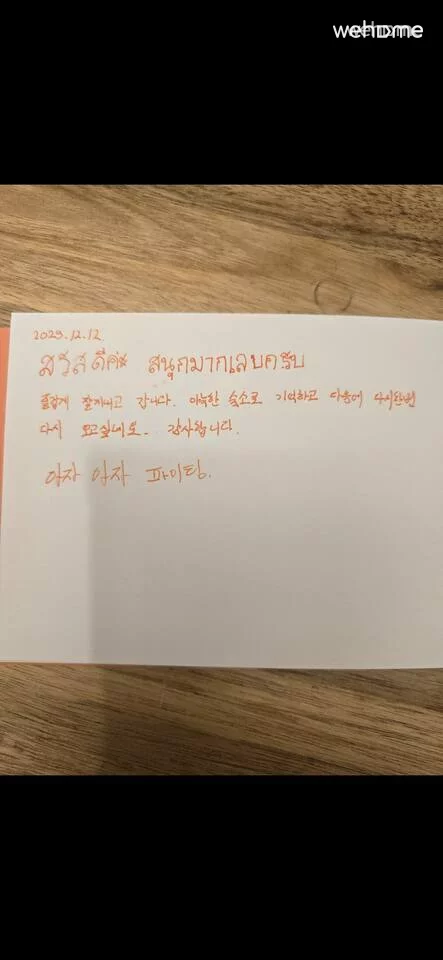 wehome
2023.12.12.
สวัสดีค่ะ สนุกมากเลยครับ
즐겁게 잘지내고 갑니다. 아늑한 숙소로 기억하고 다음에 다시한번
다시 오고싶네요. 감사합니다.
아자 아자 파이팅.